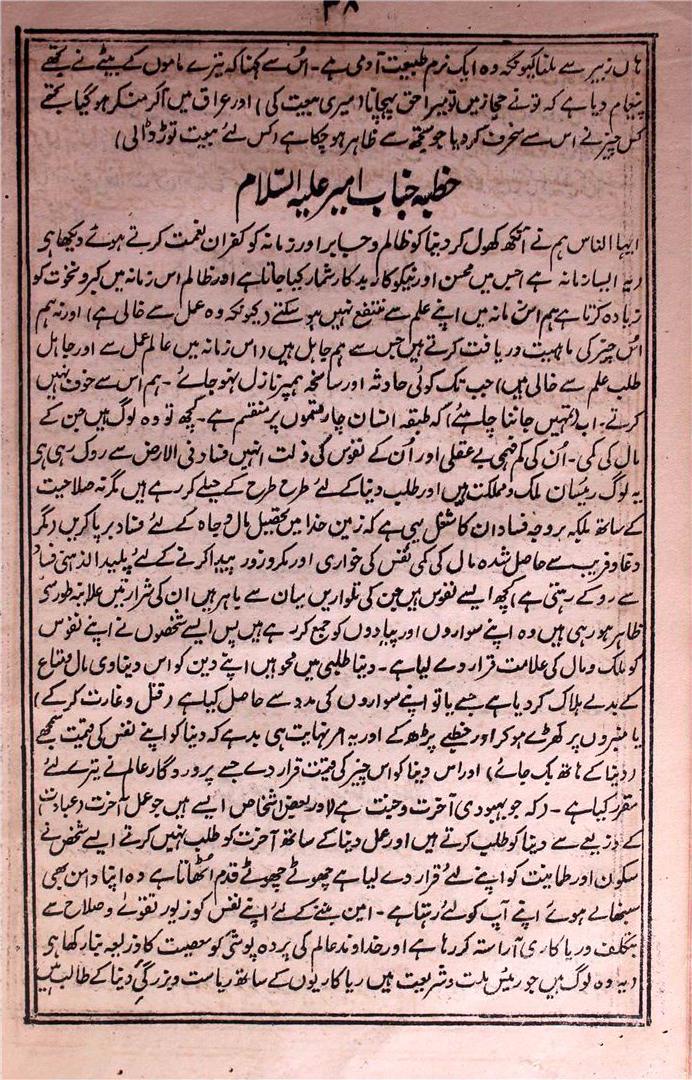 ۳۸
ہاں زبیر سے ملنا کیونکہ وہ ایک نرم طبیعت آدمی ہے۔ اُس سے کہنا کہ تیرے ماموں کے بیٹے نے تجھے
پیغام دیا ہے کہ تو نے حجاز میں تو میرا حق پہچانا (میری بیعت کی) اور عراق میں آکر منکر ہو گیا تجھے
کس چیز نے اس سے منحرف کر دیا جو تجھ سے ظاہر ہو چکا ہے (کس لئے بیعت توڑ ڈالی)
خطبہ جناب امیر علیہ السّلام
ایہا الناس ہم نے آنکھ کھول کر دنیا کو ظالم و جابر اور زمانہ کو کفران نعمت کرتے ہوئے دیکھا ہی
(یہ ایسا زمانہ ہے) جس میں محسن اور نیکو کار بدکار شمار کیا جاتا ہے اور ظالم اس زمانہ میں کبر و نخوت کو
زیادہ کرتا ہے ہم اس زمانہ میں اپنے علم سے منتفع نہیں ہو سکتے (کیونکہ وہ عمل سے خالی ہے) اور نہ ہم
اُس چیز کی ماہیت دریافت کرتے ہیں جس سے ہم جاہل ہیں (اس زمانہ میں عالم عمل سے اور جاہل
طلب علم سے خالی ہیں) جب تک کوئی حادثہ اور سانحہ ہمپر نازل نہو جائے۔ ہم اس سے خوف نہیں
کرتے۔ اب (تمہیں جاننا چاہئے) کہ طبقہ انسان چار قسموں پر منقسم ہے۔ کچھ تو وہ لوگ ہیں جن کے
مال کی کمی۔ اُن کی کم فہمی بے عقلی اور اُن کے نفوس کی ذلت انہیں فساد فی الارض سے روک رہی ہی
یہ لوگ رئیسان ملک و مملکت ہیں اور طلب دنیا کے لئے طرح طرح کے حیلے کر رہے ہیں مگر نہ صلاحیت
کے ساتھ بلکہ بروجہ فساد ان کا شغل یہی ہے کہ زمین خدا میں تحصیل مال و جاہ کے لئے فساد برپا کریں (مگر
دغا و فریب سے حاصل شدہ مال کی کمی نفس کی خواری اور مکر و زور پیدا کرنے کے لئے پلید الذہنی فساد
سے روکے رہتی ہے) کچھ ایسے نفوس ہیں جن کی تلواریں میان سے باہر ہیں ان کی شرارتیں علانیہ طور سی
ظاہر ہو رہی ہیں وہ اپنے سواروں اور پیادوں کو جمع کر رہے ہیں پس ایسے شخصوں نے اپنے نفوس
کو ملک و مال کی علامت قرار دے لیا ہے۔ دنیا طلبی میں محو ہیں اپنے دین کو اس دنیاوی مال و متاع
کے بدلے ہلاک کر دیا ہے جسے یا تو اپنے سواروں کی مدد سے حاصل کیا ہے (قتل و غارت کر کے)
یا منبروں پر کھڑے ہو کر اور خطبے پڑھ کے اور یہ امر نہایت ہی بد ہے کہ دنیا کو اپنے نفس کی قیمت سمجھے
(دنیا کے ہاتھ بک جائے) اور اس دنیا کو اس چیز کی قیمت قرار دے جسے پروردگار عالم نے تیرے لئے
مقرر کیا ہے۔ (کہ جو بہبودی آخرت و جنت ہے) اور بعض اشخاص ایسے ہیں جو عمل آخرت (عبادت)
کے ذریعے سے دنیا کو طلب کرتے ہیں اور عمل دنیا کے ساتھ آخرت کو طلب نہیں کرتے ایسے شخص نے
سکون اور طمانیت کو اپنے لئے قرار دے لیا ہے چھوٹے چھوٹے قدم اُٹھاتا ہے وہ اپنا دامن بھی
سمیٹے ہوئے اپنے آپ کو لئے رہتا ہے۔ امین بننے کے لئے اپنے نفس کو زیور تقوےٰ و صلاح سے
بتکلف و ریا کاری آراستہ کر رہا ہے اور خداوند عالم کی پردہ پوشی کو معصیت کا ذریعہ بنا رکھا ہی
(یہ وہ لوگ ہیں جو رئیس ملت و شریعت ہیں ریا کاریوں کے ساتھ ریاست و بزرگی دنیا کے طالب ہیں